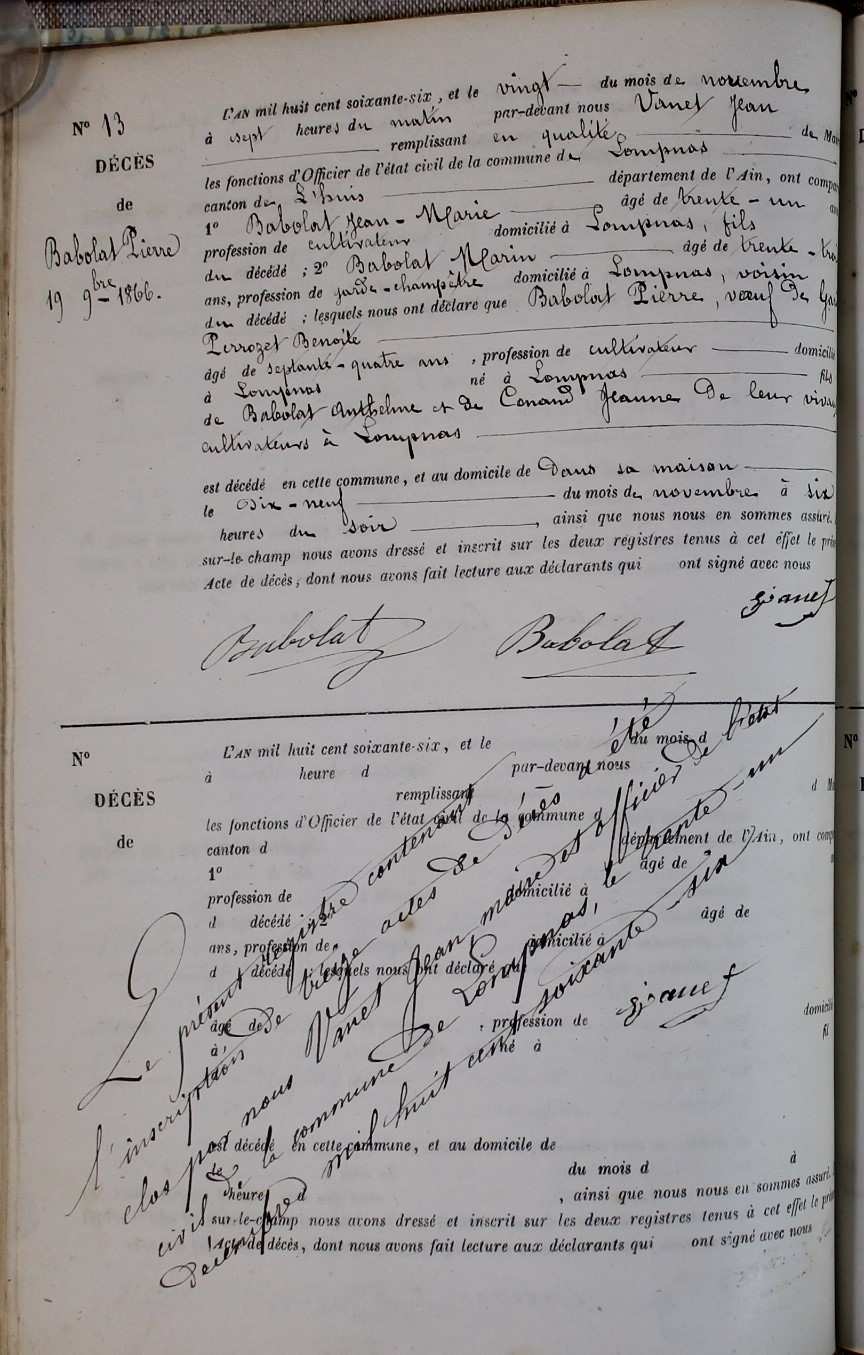 N° 13
DÉCÈS
de
Babolat Pierre
19 9bre 1866.
L'AN mil huit cent soixante-six, et le vingt du mois de novembre
à sept heures du matin par-devant nous Vanet Jean
remplissant en qualité de Ma
les fonctions d'Officier de l'état civil de la commune de Lompnas
canton de L'huis département de l'Ain, ont compa
1° Babolat Jean-Marie âgé de trente-un an
profession de cultivateur domicilié à Lompnas, fils
du décédé ; 2° Babolat Marin âgé de trente-troi
ans, profession de garde-champêtre domicilié à Lompnas, voisin
du décédé ; lesquels nous ont déclaré que Babolat Pierre, vœuf de
Perrozet Benoite
âgé de septante-quatre ans, profession de cultivateur domicilié
à Lompnas né à Lompnas fils
de Babolat Anthelme et de Conand Jeanne de leur vivan
cultivateurs à Lompnas
est décédé en cette commune, et au domicile de Dans sa maison
le Dix-neuf du mois de novembre à six
heures du soir, ainsi que nous nous en sommes assuré.
sur-le-champ nous avons dressé et inscrit sur les deux registres tenus à cet éffet le prés
Acte de décès, dont nous avons fait lecture aux déclarants qui ont signé avec nous
Vanet
Babolat Babolat
N°
DÉCÈS
de
L'AN mil huit cent soixante-six, et le du mois d
à heure d par-devant nous
remplissant d Ma
les fonctions d'Officier de l'état civil de la commune d
canton d département de l'Ain, ont comp
1° âgé de
profession de domicilié à
d décédé ; 2° âgé de
ans, profession de domicilié à
d décédé ; lesquels nous ont déclaré que
âgé de , profession de domicilié
à né à fil
est décédé en cette commune, et au domicile de
le du mois d à
heure d , ainsi que nous nous en sommes assuré.
sur-le-champ nous avons dressé et inscrit sur les deux registres tenus à cet éffet le prés
Acte de décès, dont nous avons fait lecture aux déclarants qui ont signé avec nous
Le présent registre contenant
l'inscription de treize actes de décès a été
clos par nous Vanet Jean maire et officier de l'état
civil de la commune de Lompnas, le trente-un
décembre mil huit cent soixante-six
Vanet